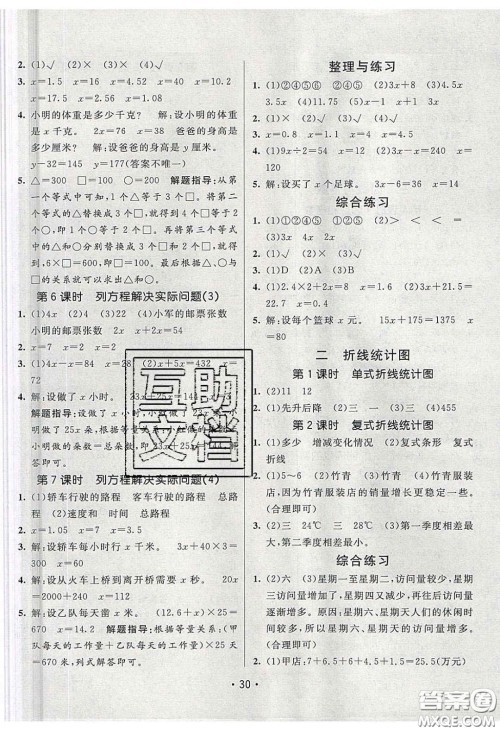 2. (1)√ (2)× (3)× (4)√
3. x=1.5 x=108 x=9.2
x=17.5 x=2.56 x=1.08
4. 小明的体重是多少千克? 解:设小明的体重
是 x 千克。 2x=76 x=38 爸爸的身高
是多少厘米? 解:设爸爸的身高是 y 厘米。
y-32=145 y=177(答案不唯一)
5. △=300 □=100 ○=200 解题指导:从第
一个等式中可知,1个△等于3个□。再根
据第二个等式可知,1个○等于2个□。将
第二个等式中的△替换成3个□,可以得到
1个○等于2个□。再将第三个等式中的△
和○分别替换成3个□和2个□,可以得
到,6×□=600,即□=100。根据关系可以
求出△=300,○=200。
第 6 课时 列方程解决实际问题(3)
1. (1)4x 3x (2)24x 22x (4)小军的邮票张数
小明的邮票张数 2x x+2x=54
2. (1)4x-x=84 x=28 (2)3x+5x=432 x
=54
4. 解:设做了 x 小时。
解题指导:设做了 x
第 7 课时 列方程解决实际问题(4)
1. (1)轿车行驶的路程 客车行驶的路程 总路
程 (2)速度和 时间 总路程
2. x=1.05 x=7 x=3.5
3. 解:设轿车每小时行 x 千米。 3x+40×3
x=115
4. 解:设从火车上桥到离开桥需要 x 秒。 20x
=2000+240 x=112
5. 解:设乙队每天凿 x 米。 (12.6+x)×25=
670 x=14.2 解题指导:根据等量关系:(甲
队每天的工作量+乙队每天的工作量)×25天
=670米,列式解答即可。
整理与练习
1. (1)②④⑤⑥ ②④⑤ (2)3x+8 (3)4.5x
3.5x (4)11.75 (5)2x 4x
2. (1)× (2)√ (3)√
3. x=0.8 x=1.1 x=4
4. (1)9x÷2=54 x=12 (2)9x-5x=140
x=35
5. 解:设买了 x 个足球。 3x-6=36 x=14
综合练习
1. (1)①②④⑤ ②④⑤ (2)> < < =
(3)3x 4x (4)15
2. (1)× (2)√ (3)√
3. (1)D (2)A (3)B
5. 解:设每个篮球 x 元。 15x+1275=1375
二 折线统计图
第 1 课时 单式折线统计图
1. (2)11 12
2. (1)先升后降 (2)三 一 (3)四 (4)455
第 2 课时 复式折线统计图
1. (1)多少 增减变化情况 (2)复式条形 复式
折线
2. (1)5~6 (2)竹青 (3)竹青服装店,因为
竹青服装店的销量增长更快更稳定。
(合理即可)
3. (2)三 (3)二 28℃ (4)第二季度相差最大,
第三季度相差最小。
综合练习
1. (2)六 (3)星期一至星期五,访问量较少,
星期六、星期天访问量较多。星期一后访问量
逐渐增多。原因:星期六、星期天人们的休闲时
间较多,所以星期六、星期天的访问量增多。
(合理即可)
2. (1)甲店:7+6.5+4.5+1.5+2.5+
·30·
互助
文档
答案圈
MXQE.COM